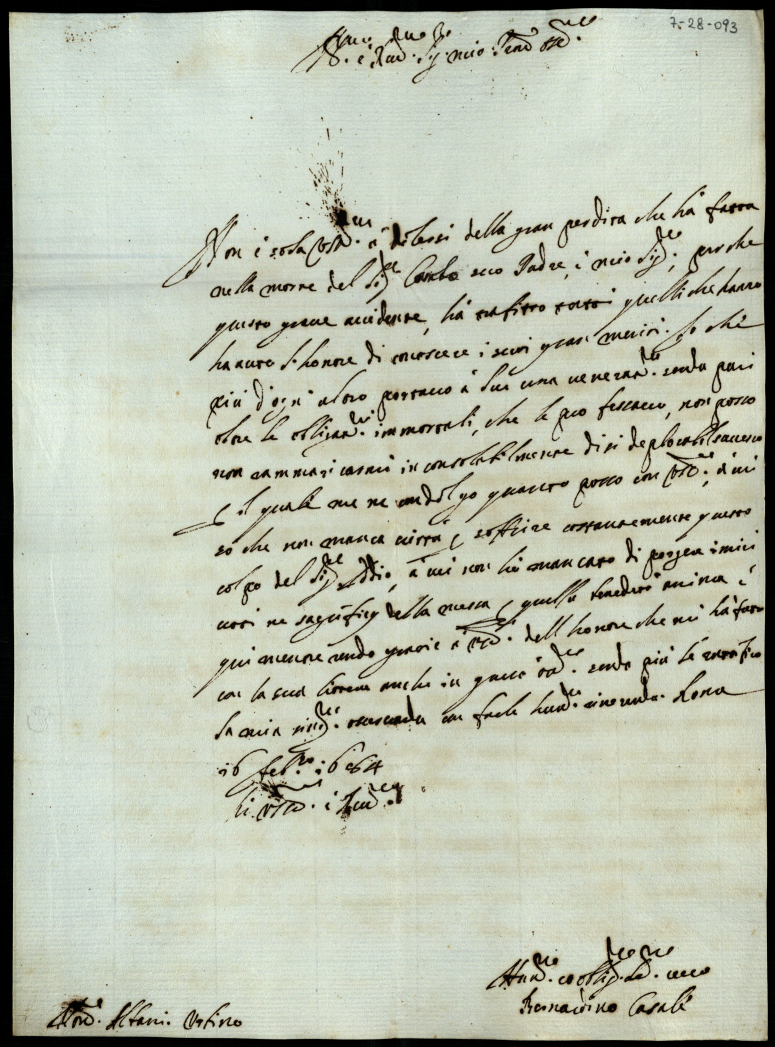 7-28-093
Ill.mo e R.mo Sig. mio
Non è sola VS Ill.ma à dolersi della gran perdita che hà fatta
nella morte del Sig.re Carlo suo Padre, è mio Sig.re, perche
questo grave accidente, hà trafitto tutti quelli che hanno
havuto l'honore di conoscere i suoi gran meriti. Io che
più d'ogni altro portavo à Lui una veneraz.ne senza pari
oltre le obligaz.ni immortali, che le professavo, non posso
non rammaricarmi inconsolabilmente di si deplorabil successo
il quale me ne condolgo quanto posso con VS Ill.ma, à cui
so che non manca virtù soffrire costantemente questo
colpo del Sig.re Iddio, à cui non hò mancato di porgere i miei
voti ne sagrificij della messa quella benedetta anima è
qui mentre rendo grazie à VS Ill.ma dell'honore che mi hà fatto
con la sua anche in questa sendo più le ratifico
la mia con farle hum.te riverenza. Roma
16 feb.ro 1664
Di VS Ill.ma è R.ma
Hum.mo et oblig.mo
Bernardino Casali
Mons. Albani. Urbino